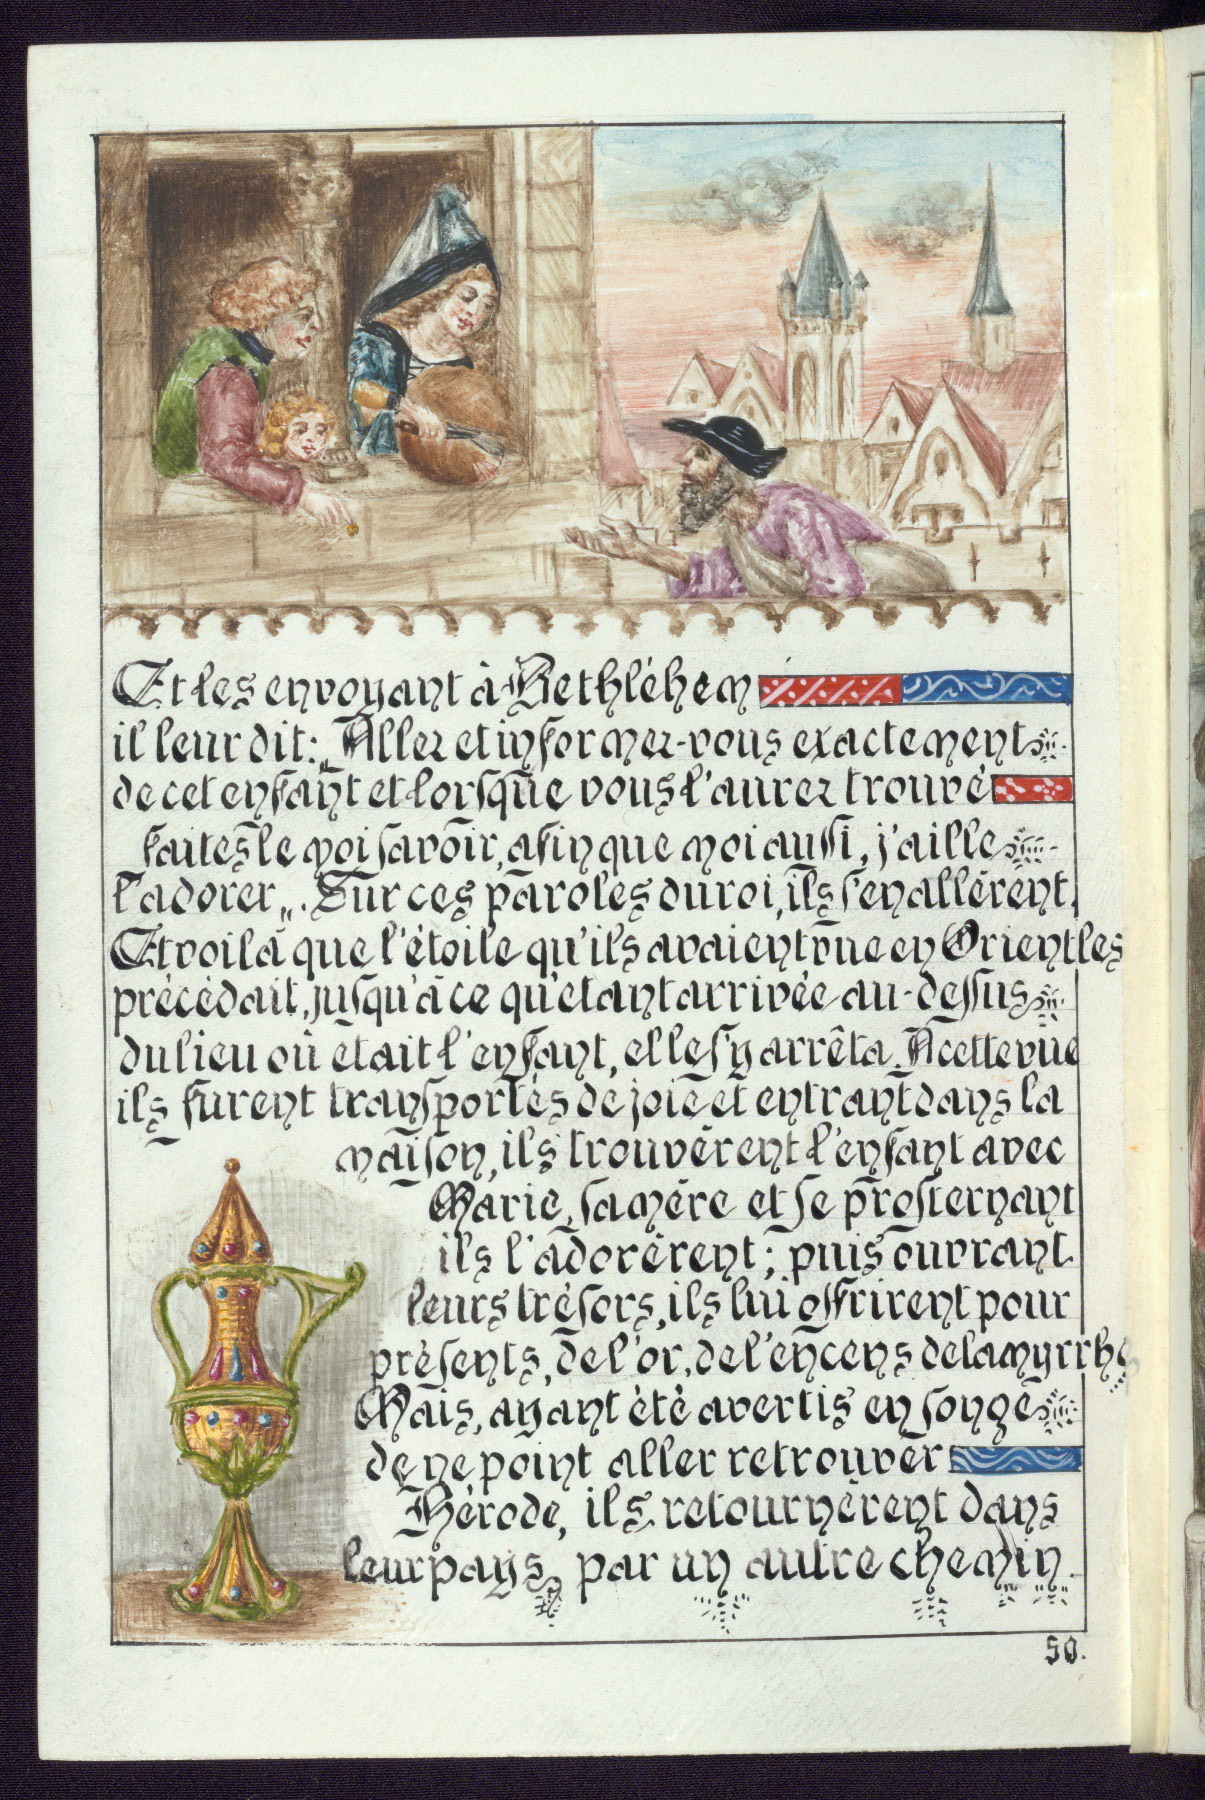 Et les envoyant à Bethléhem
il leur dit: „Allez et informez-vous exactement
de cet enfant et lorsque vous l'aurez trouvé
faites le moi savoir, afin que moi aussi, j'aille
l'adorer„. Sur ces paroles du roi, ils s'en allèrent.
Et voilà que l'étoile qu'ils avaient vue en Orient les
précédait, jusqu'à ce qu'étant arrivée au-dessus
du lieu où était l'enfant, elle s'y arrêta. A cette vue
ils furent transportés de joie et entrant dans la
maison, ils trouvèrent l'enfant avec
Marie, sa mère et se prosternant
ils l'adorèrent; puis ouvrant
leurs trésors, ils lui offrirent pour
présents, de l'or, de l'encens de la myrrhe
Mais, ayant été avertis en songe
de ne point aller retrouver
Hérode, ils retournèrent dans
leur pays, par un autre chemin.
50.